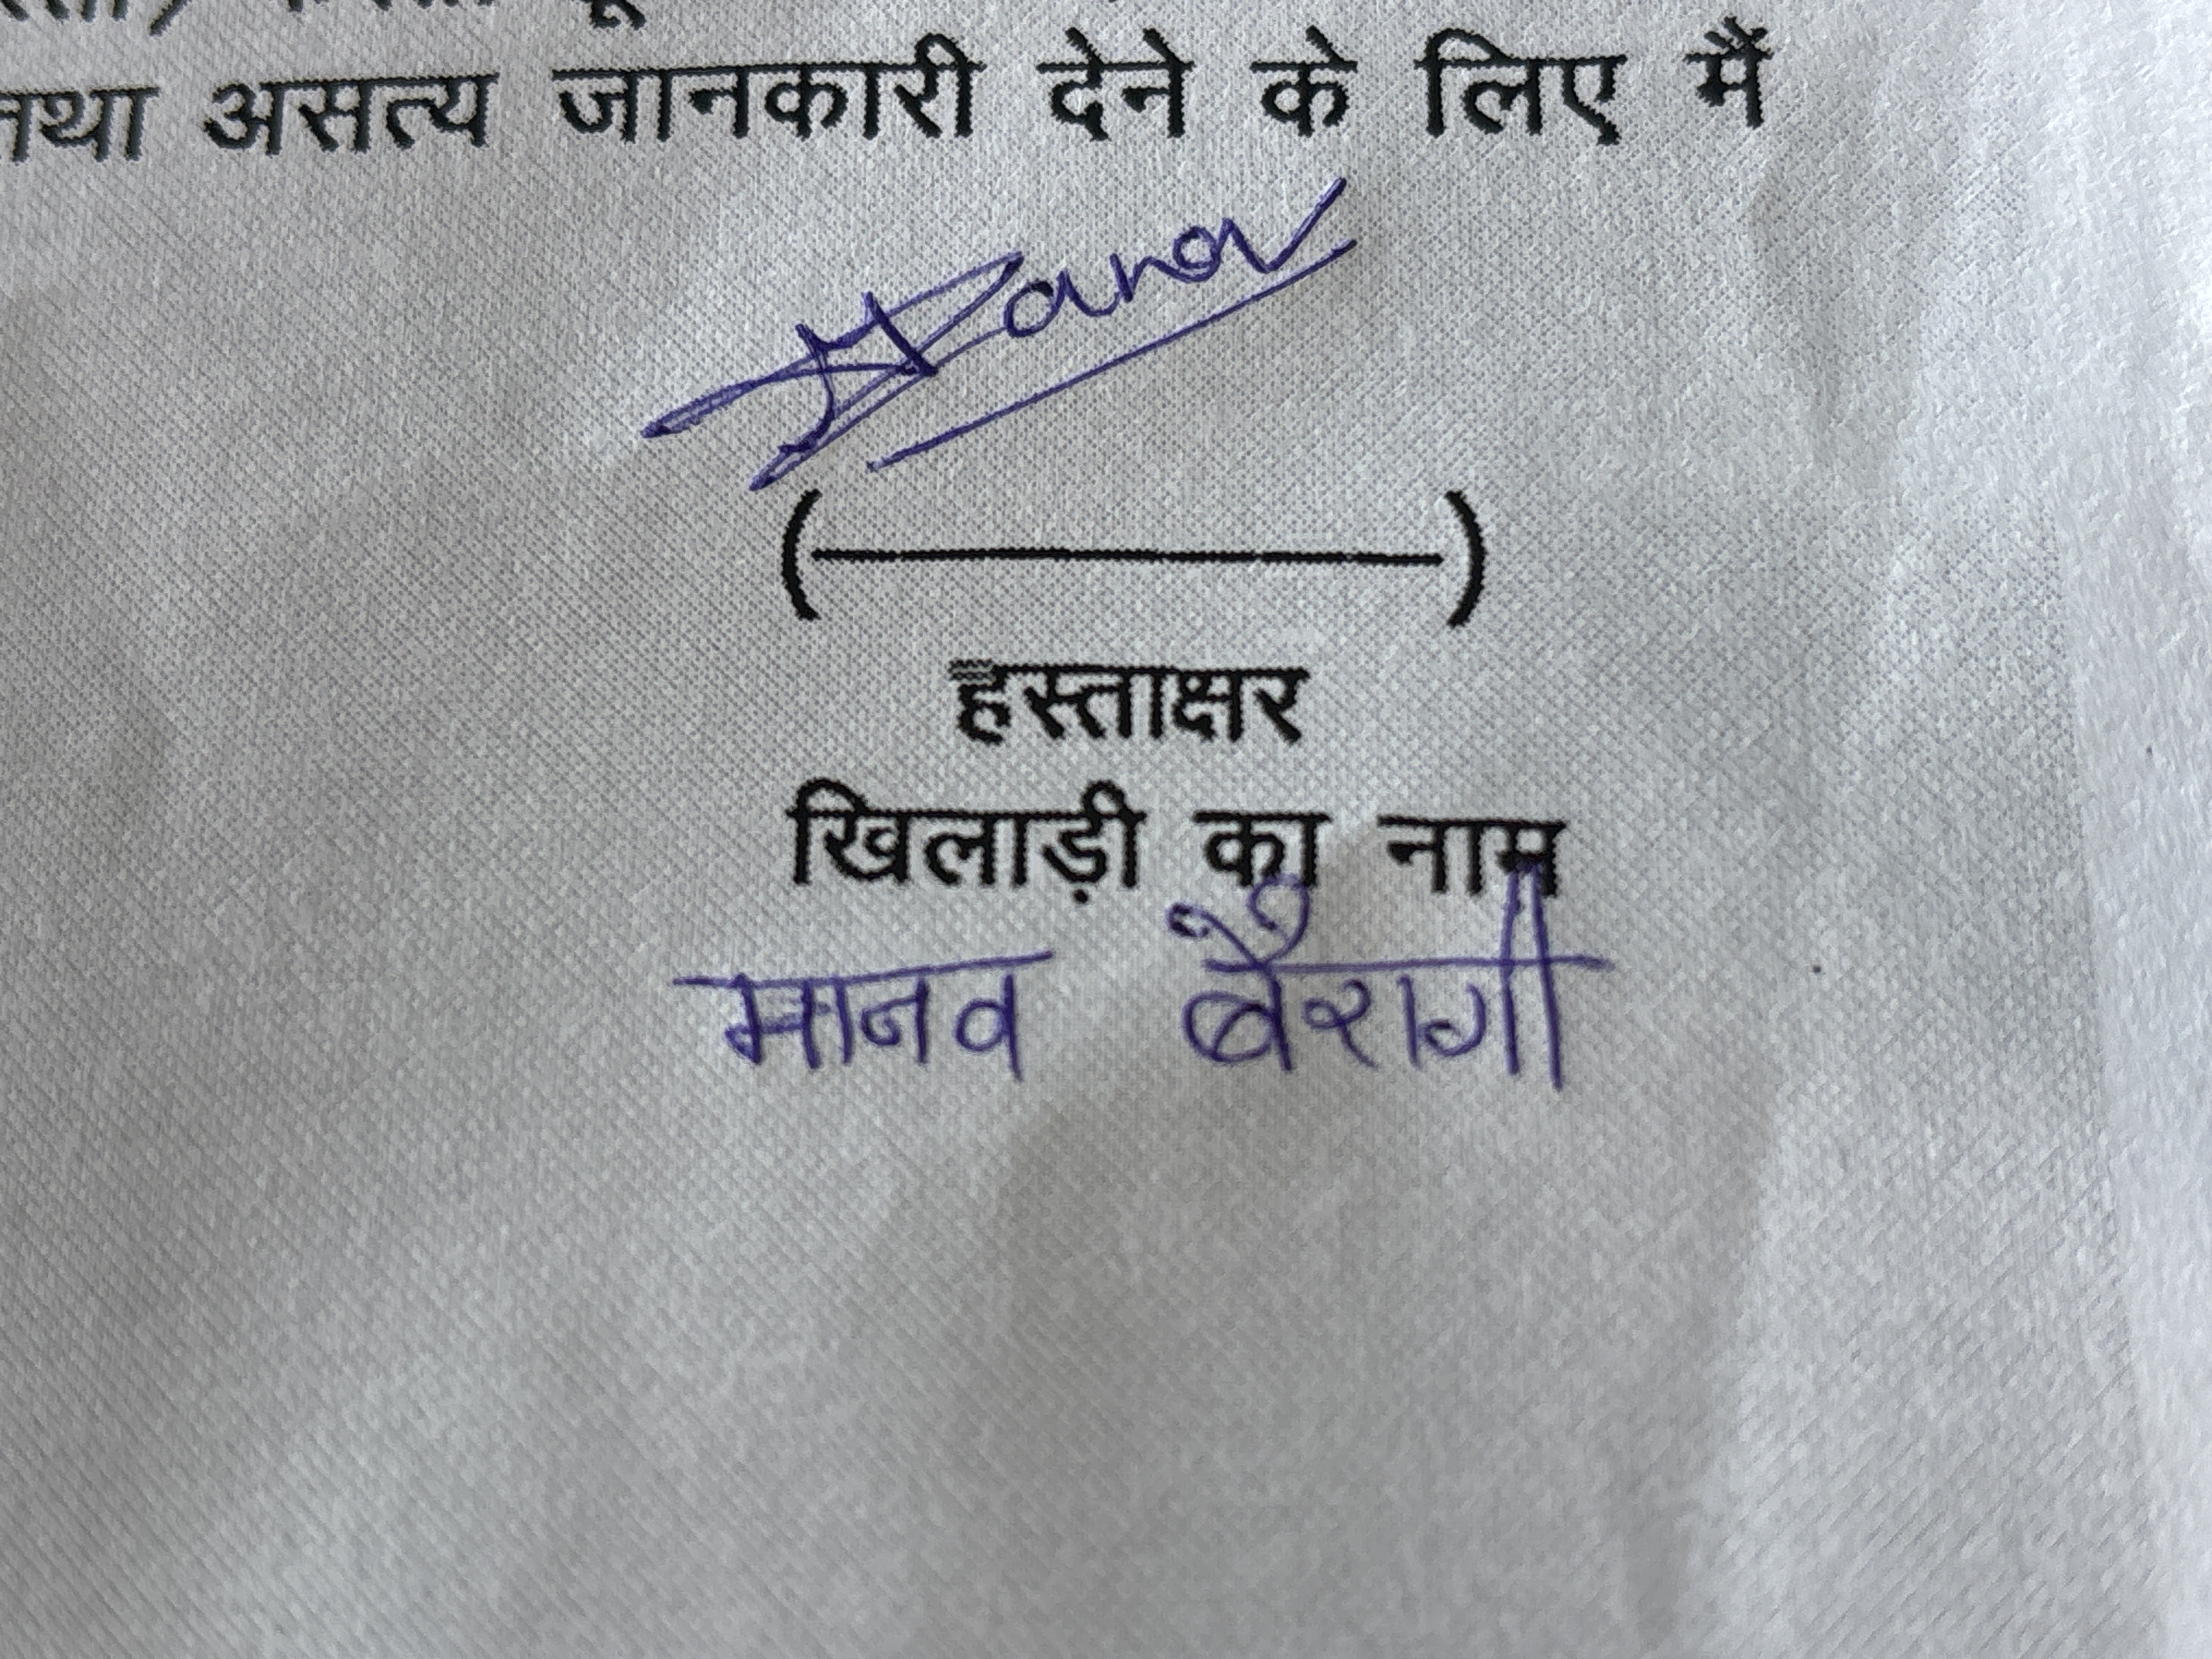 तथा असत्य जानकारी देने के लिए मैं
Manav
(————)
हस्ताक्षर
खिलाड़ी का नाम
मानव बैरागी